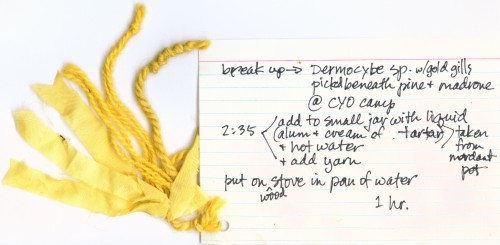 break up → Dermocybe sp. w/gold gills
picked beneath pine + madrone
@ CYO camp
2:35 add to small jar with liquid
(alum + cream of tartar) taken
+ hot water from
+ add yarn mordant
pot
put on wood stove in pan of water
1 hr.